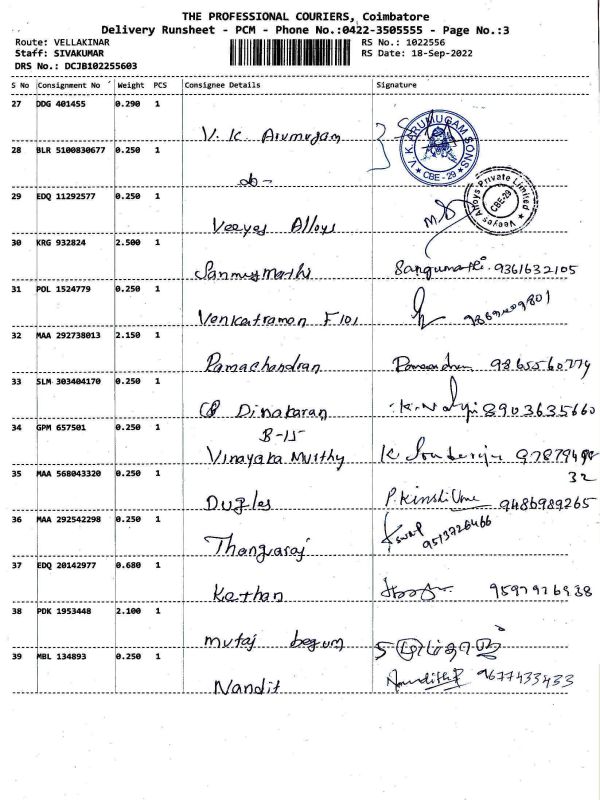 THE PROFESSIONAL COURIERS, Coimbatore
Delivery Runsheet - PCM - Phone No.:0422-3505555 - Page No.:3
Route: VELLAKINAR
RS No.: 1022556
Staff: SIVAKUMAR
RS Date: 18-Sep-2022
DRS No.: DCJB102255603
S No Consignment No Weight PCS Consignee Details Signature
27 DDG 401455 0.290 1
V. K Arumugam
V. K ARUMUGAM SONS
CBE - 29
28 BLR 5100830677 0.250 1
do-
29 EDQ 11292577 0.250 1
Veeyes Alloys
Veeyes Alloys Private Limited
CBE-29
30 KRG 932824 2.500 1
Sanmugmathi 9361632105
31 POL 1524779 0.250 1
Venkatraman F101
32 MAA 292738013 2.150 1
Ramachandran 9865560779
33 SLM 303404170 0.250 1
Dinakaran 8903635660
34 GPM 657501 0.250 1
B-15
Vinayaka Murthy K
32
35 MAA 568043320 0.250 1
Dugles 9486989265
36 MAA 292542298 0.250 1
Thangaraj 9513726466
37 EDQ 20142977 0.680 1
Kethan 9597926938
38 PDK 1953448 2.100 1
mutaj begum
39 MBL 134893 0.250 1
Nandit 9677433433